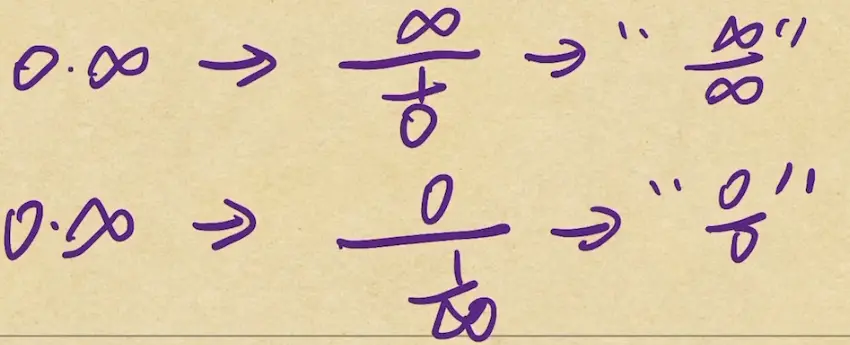 0·∞ → ∞/(1/0) → "∞/∞"
0·∞ → 0/(1/∞) → "0/0"